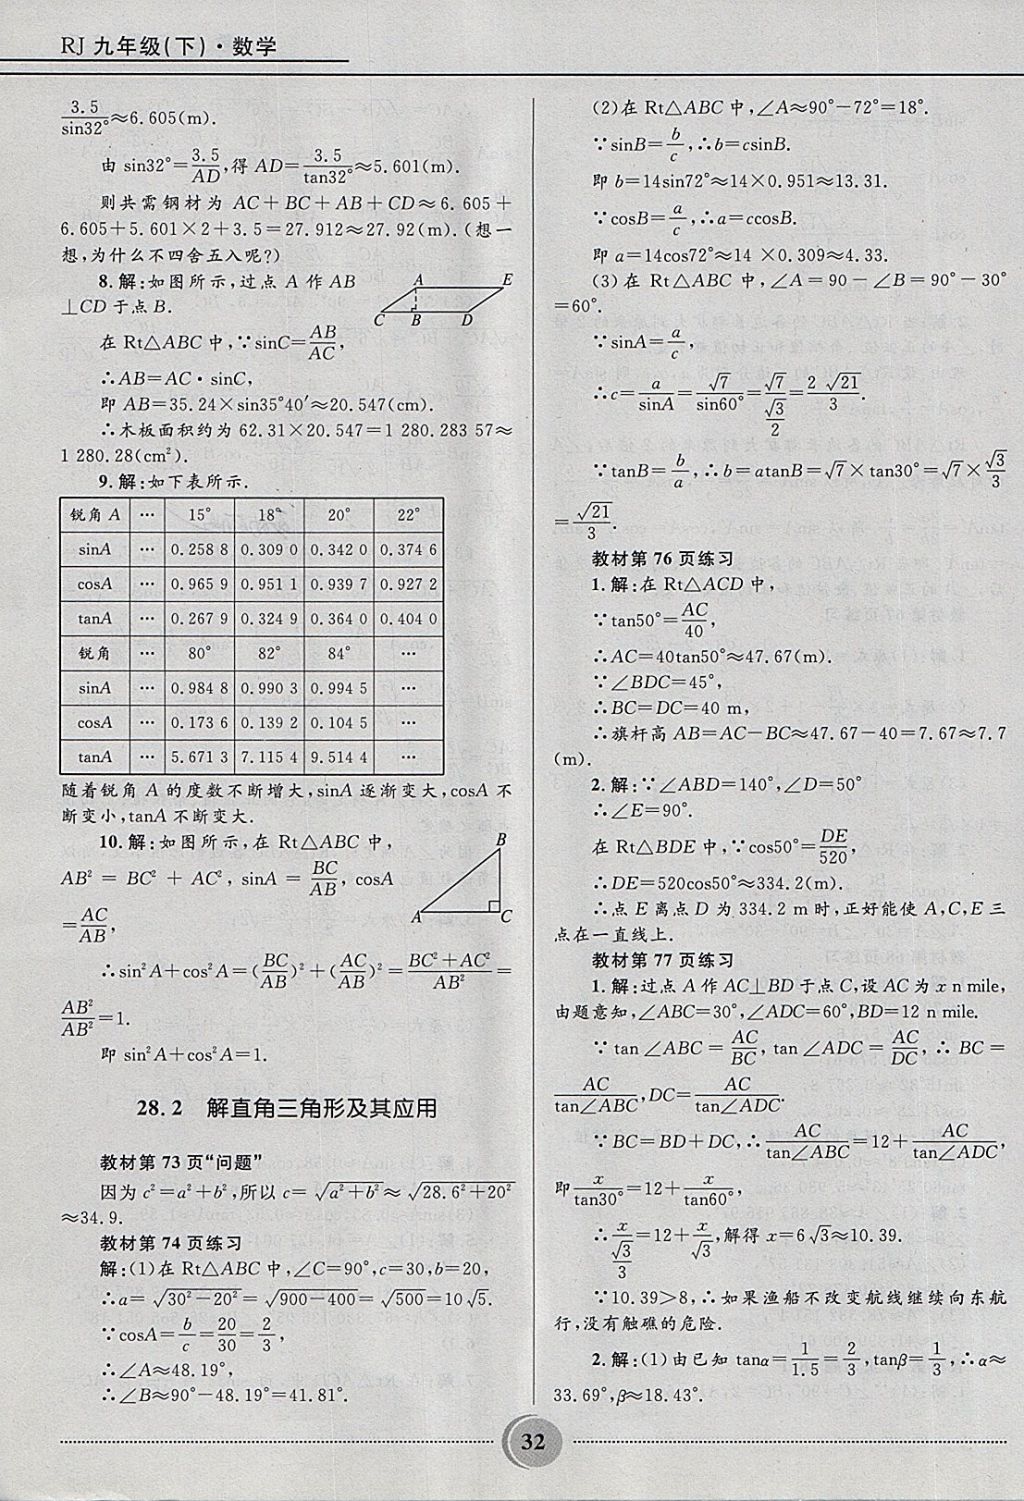 RJ 九年级(下)·数学
3.5/sin32°≈6.605(m).
由 sin32°=3.5/AD,得 AD=3.5/tan32°≈5.601(m).
则共需钢材为 AC+BC+AB+CD≈6.605+
6.605+5.601×2+3.5=27.912≈27.92(m).(想一
想,为什么不四舍五入呢?)
8.解:如图所示,过点 A 作 AB
⊥CD 于点 B.
A E
C B D
在 Rt△ABC 中,∵sinC=AB/AC,
∴AB=AC·sinC,
即 AB=35.24×sin35°40′≈20.547(cm).
∴木板面积约为 62.31×20.547=1 280.283 57≈
1 280.28(cm²).
9.解:如下表所示.
锐角 A … 15° 18° 20° 22°
sinA … 0.258 8 0.309 0 0.342 0 0.374 6
cosA … 0.965 9 0.951 1 0.939 7 0.927 2
tanA … 0.267 9 0.324 9 0.364 0 0.404 0
锐角 … 80° 82° 84° …
sinA … 0.984 8 0.990 3 0.994 5 …
cosA … 0.173 6 0.139 2 0.104 5 …
tanA … 5.671 3 7.115 4 9.514 4 …
随着锐角 A 的度数不断增大,sinA 逐渐变大,cosA 不
断变小,tanA 不断变大.
10.解:如图所示,在 Rt△ABC 中,
AB²=BC²+AC²,sinA=BC/AB,cosA
=AC/AB,
B
A C
∴sin²A+cos²A=(BC/AB)²+(AC/AB)²=(BC²+AC²)/AB²=
AB²/AB²=1.
即 sin²A+cos²A=1.
28.2 解直角三角形及其应用
教材第 73 页“问题”
因为 c²=a²+b²,所以 c=√(a²+b²)≈√(28.6²+20²)
≈34.9.
教材第 74 页练习
解:(1)在 Rt△ABC 中,∠C=90°,c=30,b=20,
∴a=√(30²-20²)=√(900-400)=√500=10√5.
∵cosA=b/c=20/30=2/3,
∴∠A≈48.19°,
∴∠B≈90°-48.19°=41.81°.
(2)在 Rt△ABC 中,∠A≈90°-72°=18°.
∵sinB=b/c,∴b=csinB.
即 b=14sin72°≈14×0.951≈13.31.
∵cosB=a/c,∴a=ccosB.
即 a=14cos72°≈14×0.309≈4.33.
(3)在 Rt△ABC 中,∠A=90-∠B=90°-30°
=60°.
∵sinA=a/c,
∴c=a/sinA=√7/sin60°=√7/(√3/2)=2√21/3.
∵tanB=b/a,∴b=atanB=√7×tan30°=√7×√3/3
=√21/3.
教材第 76 页练习
1.解:在 Rt△ACD 中,
∵tan50°=AC/40,
∴AC=40tan50°≈47.67(m).
∵∠BDC=45°,
∴BC=DC=40 m,
∴旗杆高 AB=AC-BC≈47.67-40=7.67≈7.7
(m).
2.解:∵∠ABD=140°,∠D=50°
∴∠E=90°.
在 Rt△BDE 中,∵cos50°=DE/520,
∴DE=520cos50°≈334.2(m).
∴点 E 离点 D 为 334.2 m 时,正好能使 A,C,E 三
点在一直线上.
教材第 77 页练习
1.解:过点 A 作 AC⊥BD 于点 C,设 AC 为 x n mile,
由题意知,∠ABC=30°,∠ADC=60°,BD=12 n mile.
∵tan∠ABC=AC/BC,tan∠ADC=AC/DC,∴BC=
AC/tan∠ABC,DC=AC/tan∠ADC.
∵BC=BD+DC,∴AC/tan∠ABC=12+AC/tan∠ADC,
即x/tan30°=12+x/tan60°,
∴x/(√3/3)=12+x/√3,解得 x=6√3≈10.39.
∵10.39>8,∴如果渔船不改变航线继续向东航
行,没有触礁的危险.
2.解:(1)由已知 tanα=1/1.5=2/3,tanβ=1/3,∴α≈
33.69°,β≈18.43°.
32